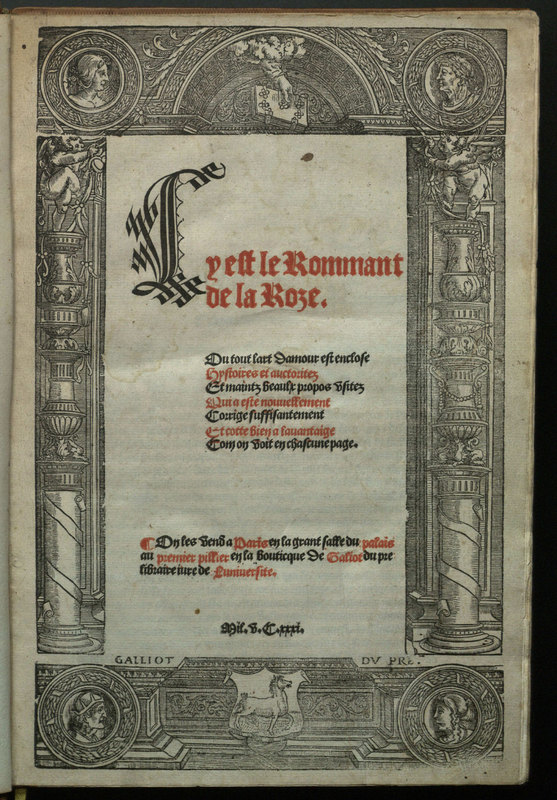 Cy est le Rommant
de la Roze.
Ou tout lart damour est enclose
Hystoires et auctoritez
Et maintz beaulx propos vsitez
Qui a este nouuellement
Corrige suffisantement
Et cotte bien a lauantaige
Com on voit en chascune page.
¶ On les vend a Paris en la grant salle du palais
au premier pillier en la bouticque de Galliot du pre
libraire iure de Luniuersite.
Mil. v. C. xxxi.
GALLIOT DV PRE.